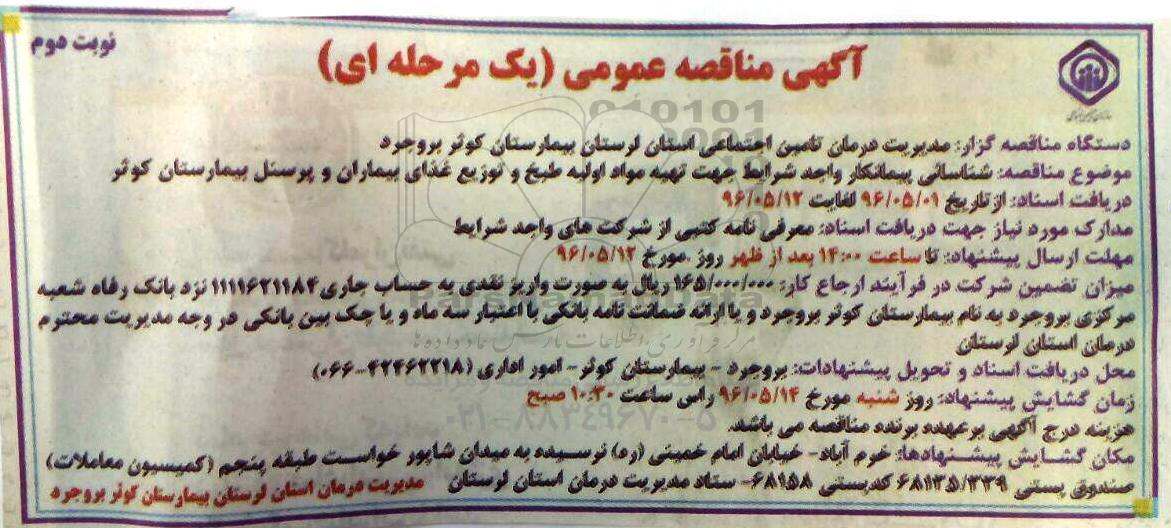 نوبت دوم
آگهی مناقصه عمومی (یک مرحله ای)
دستگاه مناقصه گزار: مدیریت درمان تامین اجتماعی استان لرستان بیمارستان کوثر بروجرد
موضوع مناقصه: شناسائی پیمانکار واجد شرایط جهت تهیه مواد اولیه طبخ و توزیع غذای بیماران و پرسنل بیمارستان کوثر
دریافت اسناد: از تاریخ ۹۶/۰۵/۰۱ لغایت ۹۶/۰۵/۱۲
مدارک مورد نیاز جهت دریافت اسناد: معرفی نامه کتبی از شرکت های واجد شرایط
مهلت ارسال پیشنهاد: تا ساعت ۱۴:۰۰ بعد از ظهر روز .مورخ ۹۶/۰۵/۱۲
میزان تضمین شرکت در فرآیند ارجاع کار: ۱۶۵/۰۰۰/۰۰۰ ریال به صورت واریز نقدی به حساب جاری ۱۱۱۱۶۲۱۱۸۴ نزد بانک رفاه شعبه
مرکزی بروجرد به نام بیمارستان کوثر بروجرد و یا ارائه ضمانت نامه بانکی با اعتبار سه ماه و یا چک بین بانکی در وجه مدیریت محترم
درمان استان لرستان
محل دریافت اسناد و تحویل پیشنهادات: بروجرد - بیمارستان کوثر- امور اداری (۴۲۴۶۲۲۱۸-۰۶۶)
زمان گشایش پیشنهاد: روز شنبه مورخ ۹۶/۰۵/۱۴ راس ساعت ۱۰:۳۰ صبح
هزینه درج آگهی بر عهده برنده مناقصه می باشد.
مکان گشایش پیشنهادها: خرم آباد- خیابان امام خمینی (ره) نرسیده به میدان شاپور خواست طبقه پنجم (کمیسیون معاملات)
صندوق پستی ۶۸۱۳۵/۳۳۹ کدپستی ۶۸۱۵۸- ستاد مدیریت درمان استان لرستان
مدیریت درمان استان لرستان بیمارستان کوثر بروجرد
ParsNamadData
مرکز فرآوری اطلاعات پارس نماد داده ها
۰۲۱-۸۸۳۴۹۶۷۰-۵